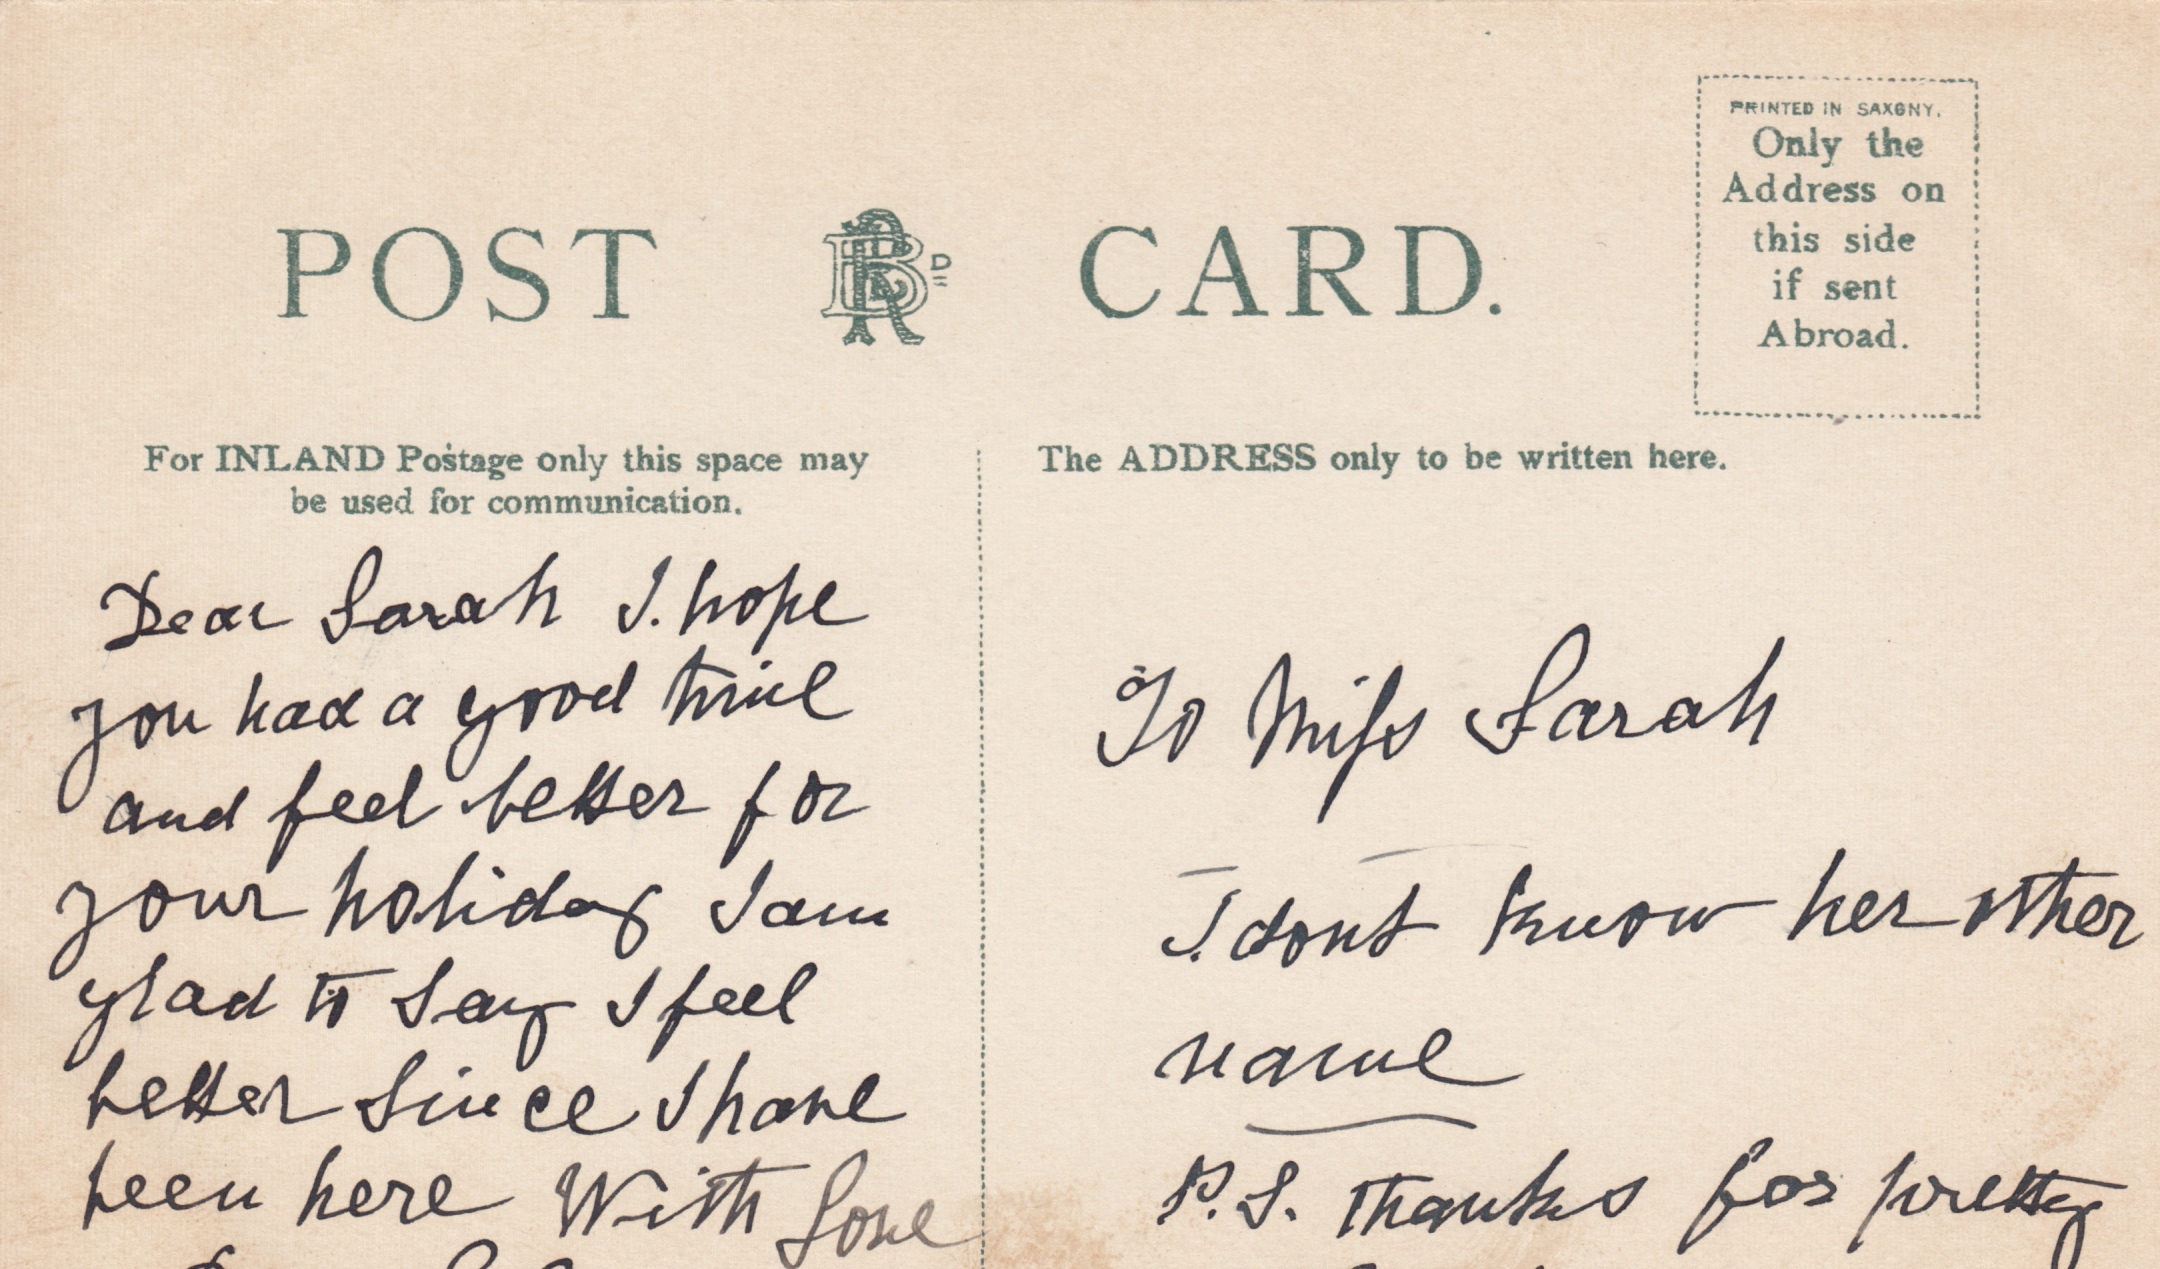 PRINTED IN SAXONY.
Only the
Address on
this side
if sent
Abroad.
POST CARD.
For INLAND Postage only this space may
be used for communication.
Dear Sarah I. hope
you had a good time
and feel better for
your holiday I am
glad to say I feel
better since I have
been here With Love
The ADDRESS only to be written here.
To Miss Sarah
I. dont know her other
name
P.S. thanks for pretty